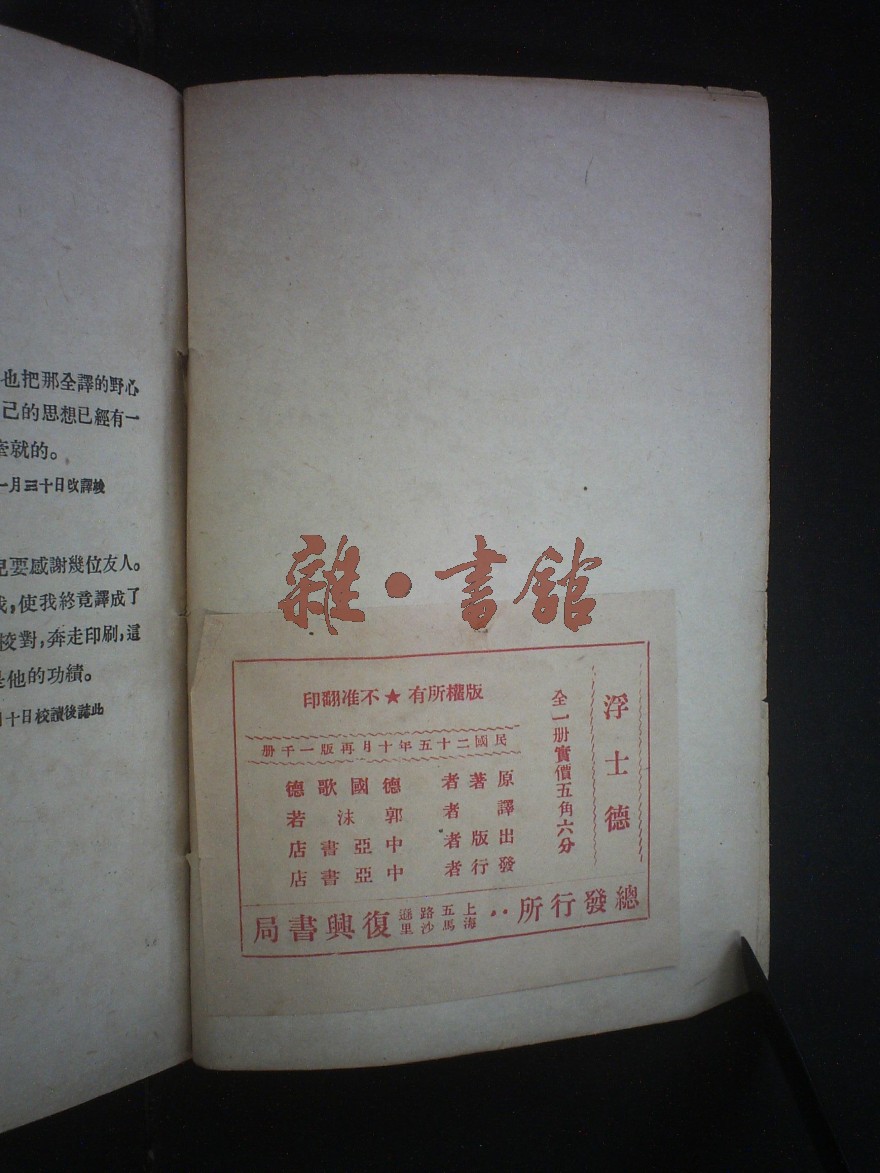 也把那全譯的野心
己的思想已經有一
牽就的。
一月三十日改譯竣
兒要感謝幾位友人。
我,使我終竟譯成了
校對,奔走印刷,這
是他的功績。
月十日校讀後誌此
雜·書館
浮士德
全一册實價五角六分
版權所有★不准翻印
民國二十五年十月再版一千册
原著者 德國歌德
譯者 郭沫若
出版者 中亞書店
發行者 中亞書店
總發行所：上海五馬路沙遜里復興書局